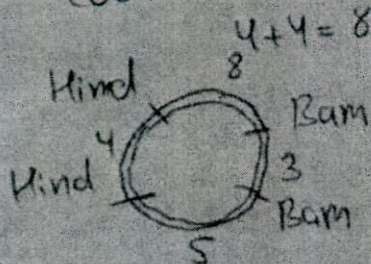 4+4=8
8
Hind
Bam
4
3
Hind
Bam
5